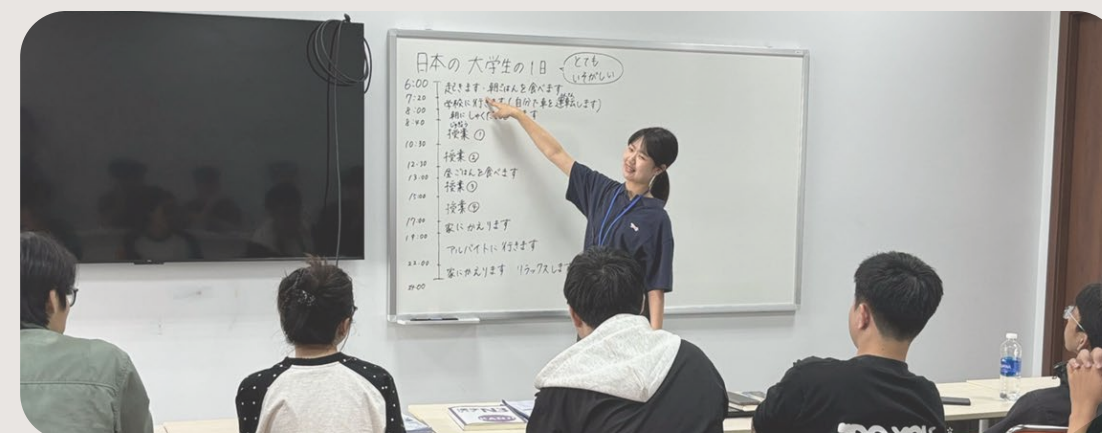 日本の大学生の1日
とても
いそがしい
6:00 起きます・朝ごはんを食べます
7:20 学校に行きます(自分で車を運転します)
8:00 朝に
8:40
授業①
10:30
授業②
12:30
13:00 昼ごはんを食べます
授業③
15:00
授業④
17:00 家にかえります
アルバイトに行きます
家にかえります リラックスします
N3